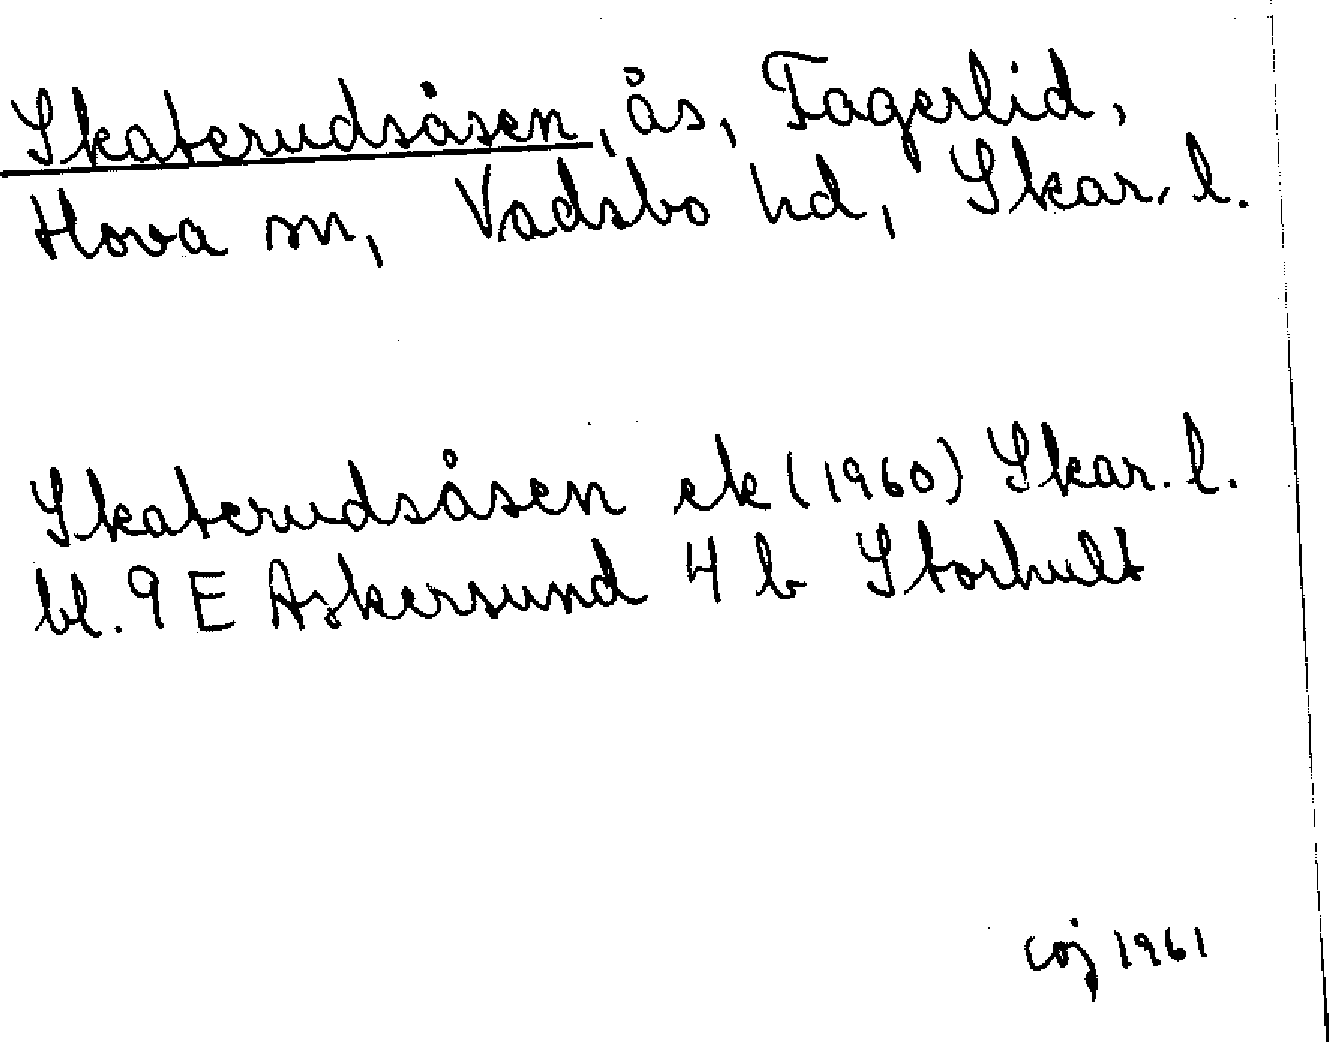 Skaterudsåsen, ås, Fagerlid,
Hova sn, Vadsbo hd, Skar. l.
Skaterudsåsen ek (1960) Skar. l.
bl. 9 E Askersund 4 b Storhult
1961